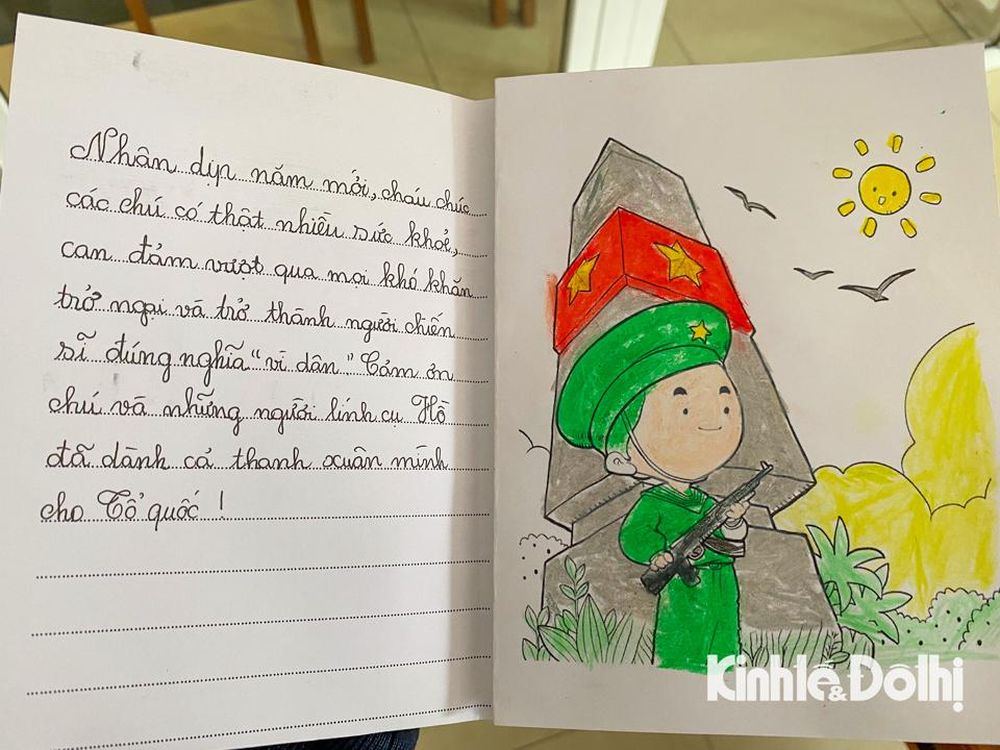 Nhân dịp năm mới, cháu chúc
các chú có thật nhiều sức khoẻ,
can đảm vượt qua mọi khó khăn
trở ngại và trở thành người chiến
sĩ đúng nghĩa "vì dân" Cảm ơn
chú và những người lính cụ Hồ
đã dành cả thanh xuân mình
cho Tổ quốc !
Kinhtế & Đôthị